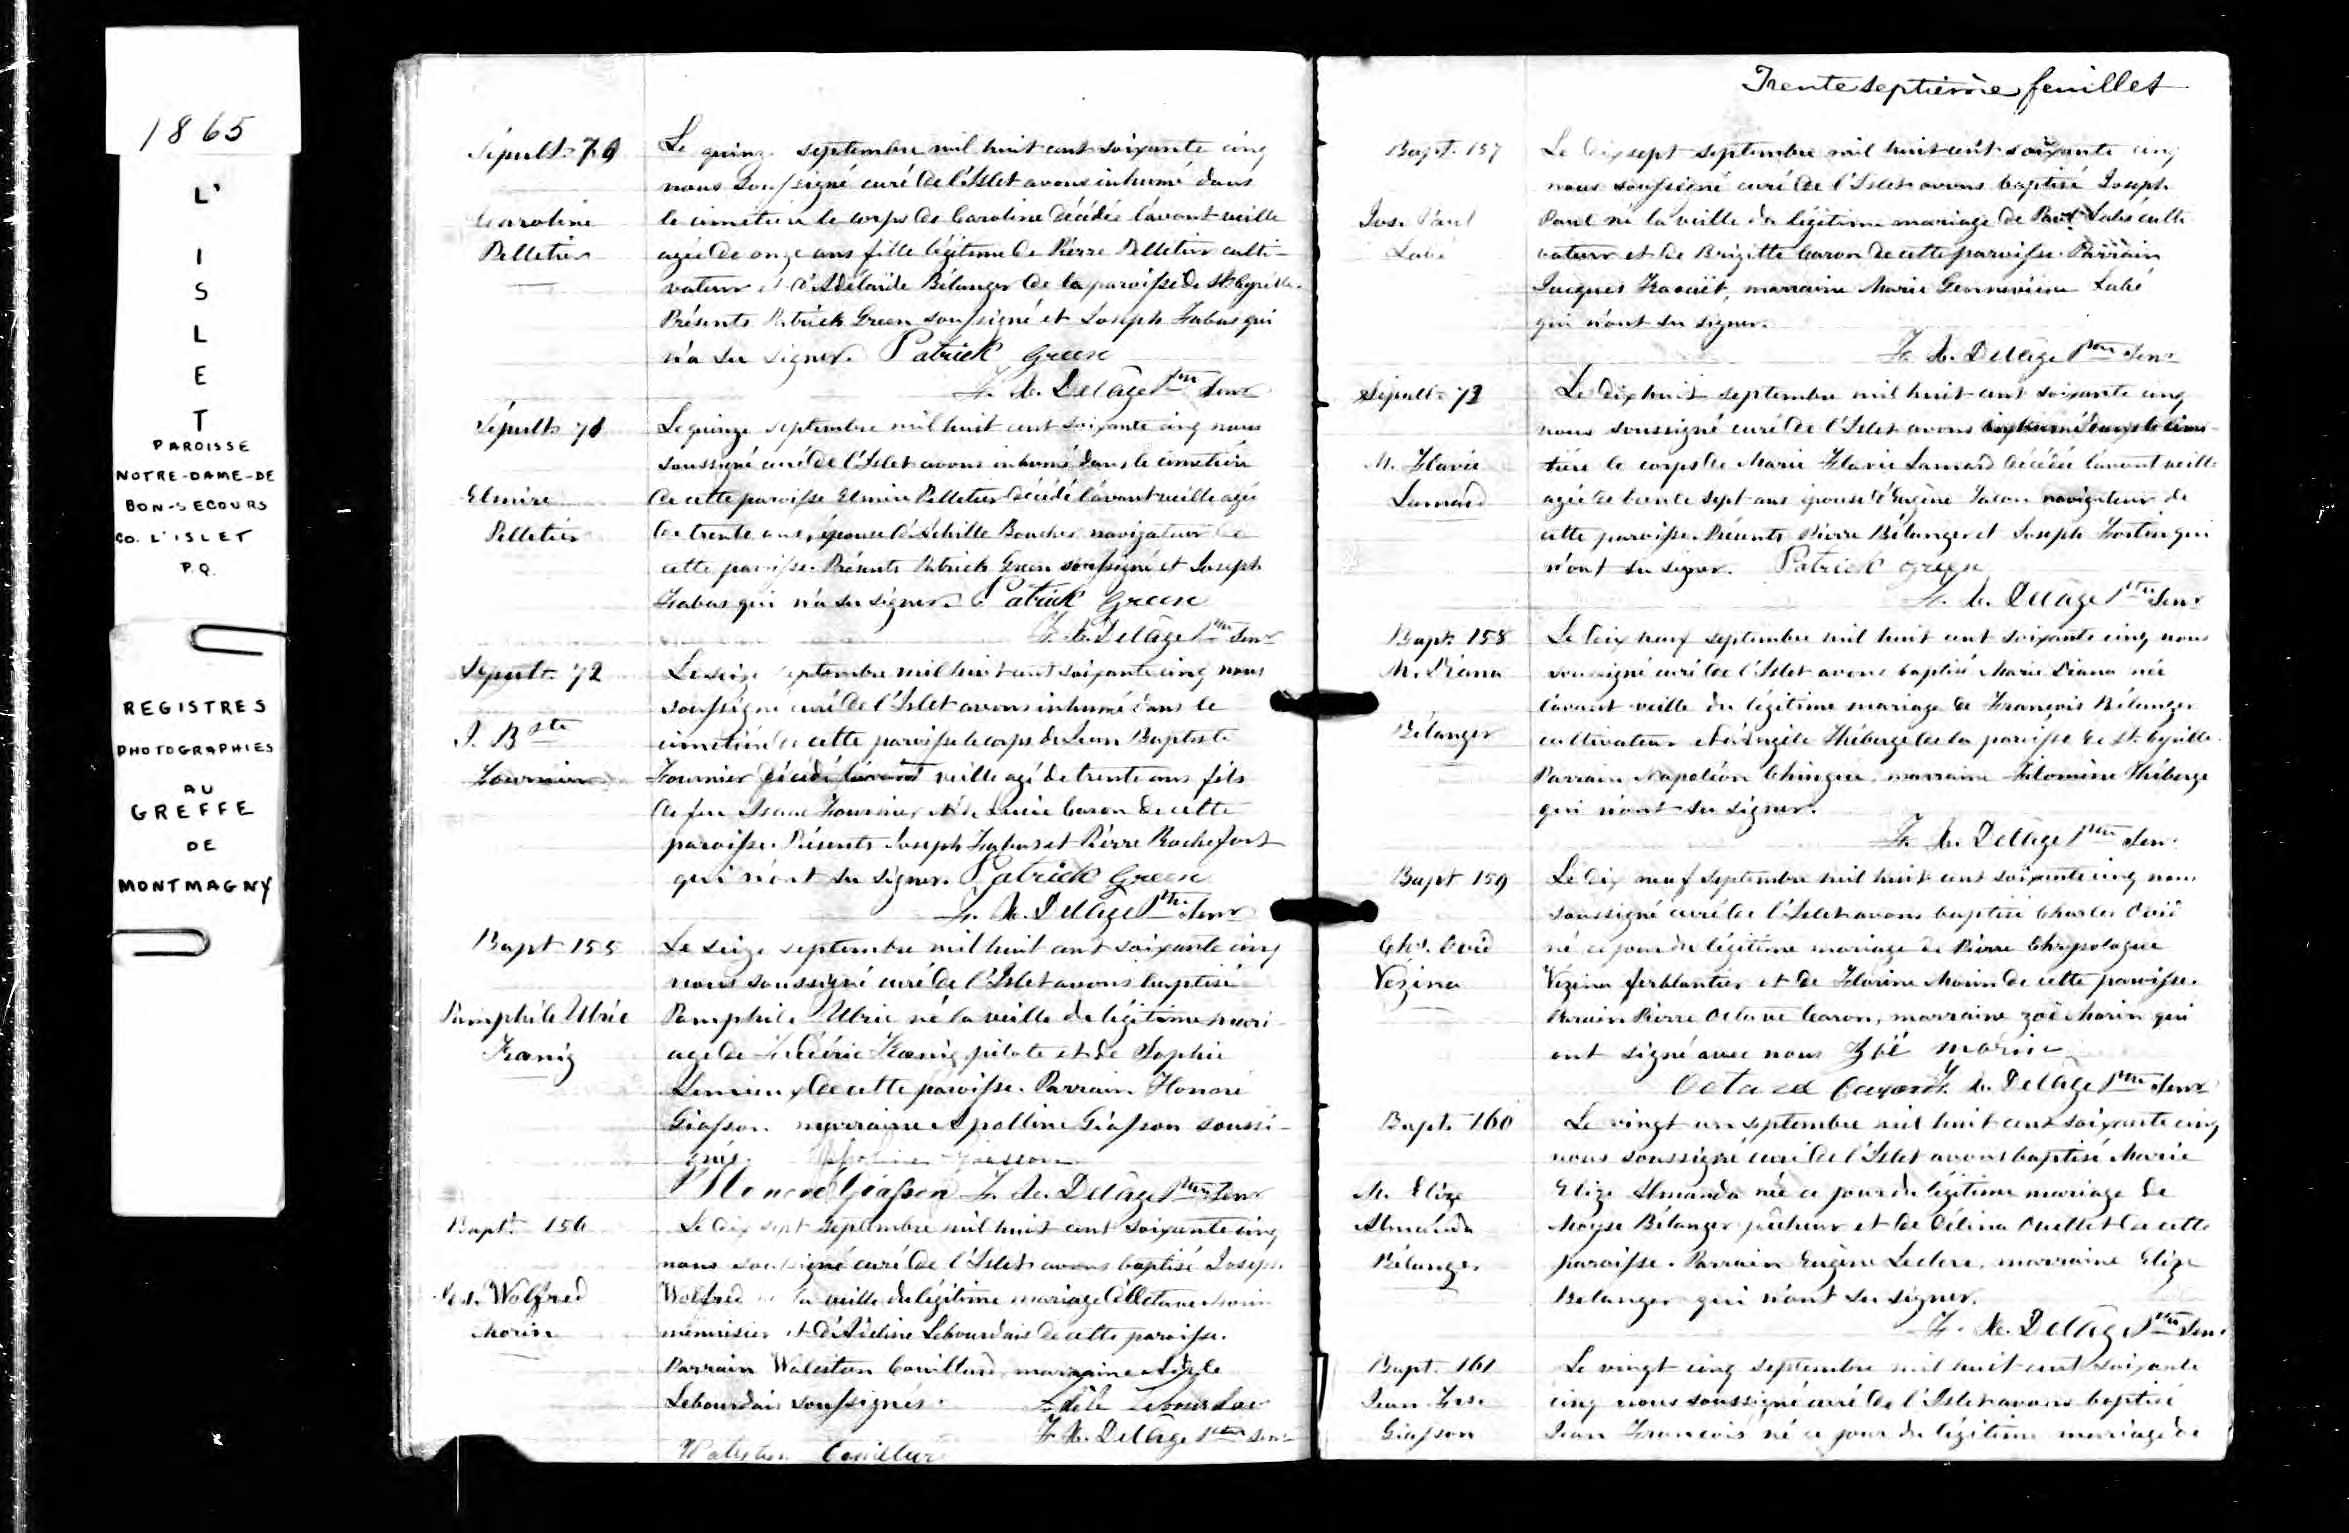 1865
L'
I
S
L
E
T
PAROISSE
NOTRE-DAME-DE
BON-SECOURS
CO. L'ISLET
P.Q.
REGISTRES
PHOTOGRAPHIES
AU
GREFFE
DE
MONTMAGNY
Sépult. 70
Caroline
Pelletier
Le quinze septembre mil huit cent soixante cinq
nous soussigné curé de l'Islet avons inhumé dans
le cimetière le corps de Caroline décédée l'avant veille
agée de onze ans fille légitime de Pierre Pelletier culti-
vateur et d'Adélaïde Bélanger de la paroisse de St. Cyrille.
Présents Patrick Green soussigné et Joseph Gabus qui
n'a su signer. Patrick Green
F. X. Delâge Ptre
Sépult. 71
Elmire
Pelletier
Le quinze septembre mil huit cent soixante cinq nous
soussigné curé de l'Islet avons inhumé dans le cimetière
de cette paroisse Elmire Pelletier décédé l'avant veille agée
de trente ans, épouse d'Achille Boucher navigateur de
cette paroisse. Présents Patrick Green soussigné et Joseph
qui n'a su signer. Patrick Green
F. X. Delâge Ptre
Sépult. 72
J. Bste
Fournier
Le seize septembre mil huit cent soixante cinq nous
soussigné curé de l'Islet avons inhumé dans le
cimetière de cette paroisse le corps de Jean Baptiste
Fournier décédé l'avant veille agé de trente ans fils
de feu Isaac Fournier et de Lucie Caron de cette
paroisse. Présents Joseph et Pierre Rochefort
qui n'ont su signer. Patrick Green
F. X. Delâge Ptre
Bapt. 155
Pamphile Ulric
Kœnig
Le seize septembre mil huit cent soixante cinq
nous soussigné curé de l'Islet avons baptisé
Pamphile Ulric né la veille du légitime mari-
age de Frédéric Kœnig pilote et de Sophie
Lemieux de cette paroisse. Parrain Honoré
Giasson marraine Apolline Giasson soussi-
gnés.
Honoré Giasson F. X. Delâge Ptre
Bapt. 156
Jos. Wolfred
Morin
Le dix sept septembre mil huit cent soixante cinq
nous soussigné curé de l'Islet avons baptisé Joseph
Wolfred né la veille du légitime mariage d'Octave Morin
menuisier et d'Adeline Lebourdais de cette paroisse.
Parrain Walestan Couillard, marraine Adèle
Lebourdais soussignés. Adèle
F. X. Delâge Ptre
Trente septième feuillet
Bapt. 157
Jos. Paul
Labé
Le dix sept septembre mil huit cent soixante cinq
nous soussigné curé de l'Islet avons baptisé Joseph
Paul né la veille du légitime mariage de Paul Labé culti
vateur et de Brigitte Caron de cette paroisse. Parrain
Jacques marraine Marie Gennevieve Labé
qui n'ont su signer.
F. X. Delâge Ptre
Sépult. 73
M. Flavie
Lamard
Le dix huit septembre mil huit cent soixante cinq
nous soussigné curé de l'Islet avons inhumé dans le cime-
tière le corps de Marie Flavie Lamard décédée l'avant veille
agée de trente sept ans épouse d'Eugène navigateur de
cette paroisse. Présents Pierre Bélanger et Joseph Fortin qui
n'ont su signer. Patrick Green
F. X. Delâge Ptre
Bapt. 158
M. Diana
Bélanger
Le dix neuf septembre mil huit cent soixante cinq nous
soussigné curé de l'Islet avons baptisé Marie Diana née
l'avant veille du légitime mariage de François Bélanger
cultivateur et d'Angèle Théberge de la paroisse de St. Cyrille.
Parrain Napoléon Chinguer, marraine Filomène Théberge
qui n'ont su signer.
F. X. Delâge Ptre
Bapt 159
Chs. Ovid
Vézina
Le dix neuf septembre mil huit cent soixante cinq nous
soussigné curé de l'Islet avons baptisé Charles Ovid
né ce jour du légitime mariage de Pierre Chrysologue
Vézina ferblantier et de Florine Morin de cette paroisse.
Parrain Pierre Octave Caron, marraine Zoë Morin qui
ont signé avec nous Zoé Morin
Octave Caron F. X. Delâge Ptre
Bapt. 160
M. Elize
Almanda
Bélanger
Le vingt un septembre mil huit cent soixante cinq
nous soussigné curé de l'Islet avons baptisé Marie
Elize Almanda née ce jour du légitime mariage de
Moyse Bélanger pêcheur et de Célina Ouellet de cette
paroisse. Parrain Eugène Leclerc, marraine Elize
Belanger qui n'ont su signer.
F. X. Delâge Ptre
Bapt. 161
Jean Frs.
Giasson
Le vingt cinq septembre mil huit cent soixante
cinq nous soussigné curé de l'Islet avons baptisé
Jean François né ce jour du légitime mariage de